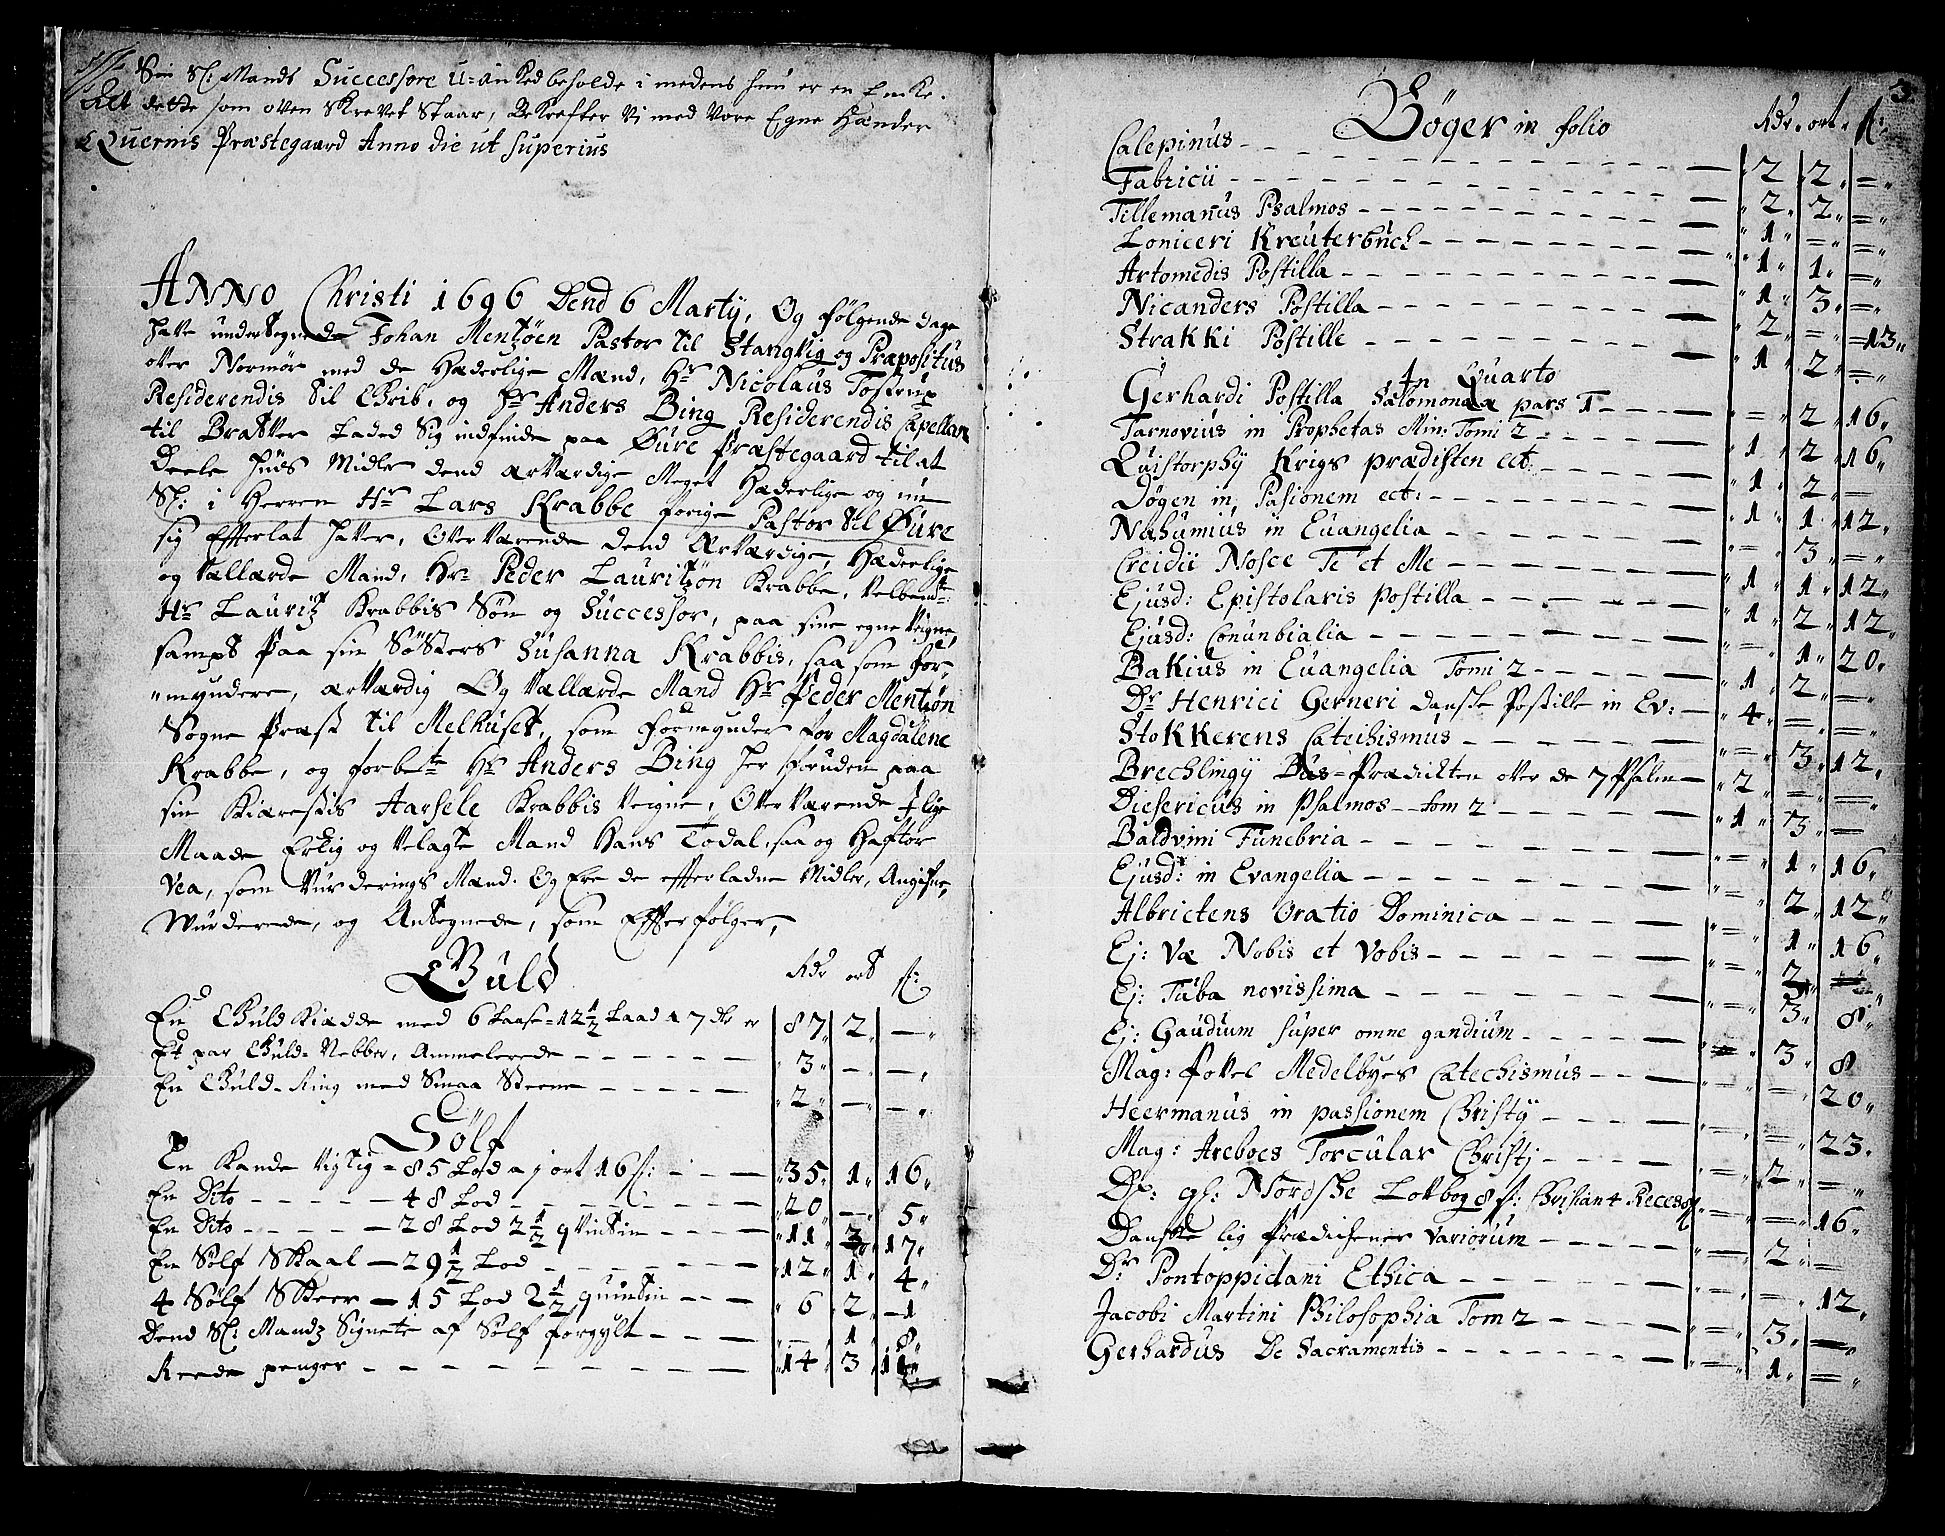 Sin Sl: Mands Successore u-anked beholde i medens hun er en Enke.
At dette som oven skrevet staar, Bekrefter Vi med Vore Egne Hænder
Quernis Præstegaard Anno die ut superius
ANNO Christi 1696 Dend 6 Martij, Og følgende dage
have undertegnede Johan Mentzøen Pastor til Stangvig og Præpositus
over Normør med de Hæderlige Mænd, Hr Nicolaus Tostrup
Residerendis til Chrib, og Hr Anders Bing Residerendis Capellan
til Brasker Laded Sig indfinde paa Øure Præstegaard til at
Deele huds Midler dend ærværdige Meget Hæderlige og nu
Sl: i Herren Hr Lars Krabbe forige Pastor til Øure
sig Effterlat haver, Overværende Dend Ærværdige, Hæderlige
og Vællærde Mand, Hr Peder Lauritzøn Krabbe, Velbemte
Hr Lauritz Krabbis Søn og Successor, paa sine egne Veigne,
sampt Paa sin Søsters Susanna Krabbis, saa som for-
"myndere, ærværdig Og Vællærde Mand Hr Peder Mentzøn
Sogne Præst til Melhuset, som Formynder for Magdalene
Krabbe, og forbete Hr Anders Bing her foruden paa
sin Kiærestis Aarsele Krabbis Veigne, Overværende I lige
Maade Erlig og Velagte Mand Hans Todal, saa og Haftor
Vea, som Vurderings Mænd. Og Ere de effterladne Midler, Angifne,
Wurderede, og Antegnede, som Effterfølger,
Guld Rdr ort s:
En Guld Kiædde med 6 Laase = 12 1/2 Laad a 7 dlr er 87 2 —
Et par Guld-Nebber, Ammelerede 3 — —
En Guld-Ring med Smaa Steene 2 — —
Sølf
En Kande Vigtig = 85 Lod a j ort 16 s: 35 1 16
En Dito 48 Lod 20 — 5
En Dito 28 Lod 2 1/2 qvintin 11 3 17
En Sølf Skaal — 29 1/2 Lod 12 1 4
4 Sølf Skeer — 15 Lod 2 1/2 quintin 6 2 1
Dend Sl: Mandz Signete af Sølf forgylt — 1 8
Reede penger 14 3 11
3
Bøger in folio Rdr. ort. s:
Calepinus 2 2 =
Fabricii 2 2 =
Tillemanus Psalmos 1 = =
Loniceri Kreuterbuch 1 1 =
Artomedis Postilla 1 3 =
Nicanders Postilla 2 = 13
Strakki Postille 1 2 =
In Quarto
Gerhardi Postilla Salomonæa pars 1 = 2 16
Tarnovius in Prophetas Min: Tomi 2 1 2 16
Quistorphij Krigs prædicken ect: 1 2 =
Døgen in Pasionem ect: 1 1 12
Nahumius in Euangelia = 3 =
Creidii Nosce Te et Me 1 1 12
Ejusd: Epistolaris Postilla 1 2 12
Ejusd: Conunbialia = 1 20
Bakius in Euangelia Tomi 2 1 2 =
Dr Henrici Gerneri Danske Postille in Ev: 4 = =
Stokkerens Catechismus = 3 12
Brechlingij Bus-Prædicken over de 7 Psalm 2 = =
Diesericus in Psalmos — tom 2 1 3 =
Baldvini Funebria = 1 16
Ejusd: in Evangelia = 2 12
Albrictens Oratio Dominica = 1 16
Ej: Væ Nobis et Vobis = 2 =
Ej: Tuba novissima = 3 8
Ej: Gaudium super omne gaudium = 3 8
Mag: Povel Medelbyes Catechismus = = 20
Heermanus in passionem Christij = = 23
Mag: Areboes Torcular Christj = 2 =
Dl: gl: Nordske Lovbog 8 s: Christian 4 Recess 8 s = = 16
Danske lig Prædichener Variorum = 2 =
Dr Pontoppidani Ethica = = 12
Jacobi Martini Philosophia Tom 2 = 3 =
Gerhardus De Sacramentis = 1 =